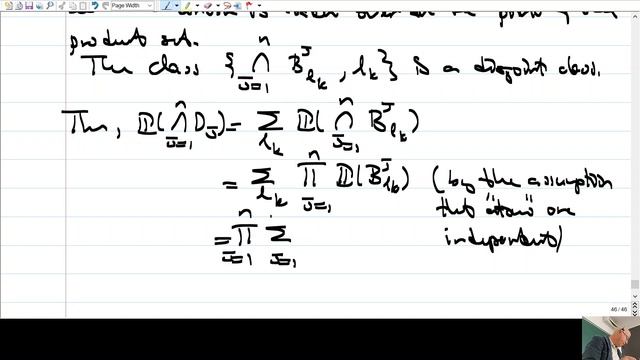 Page Width
product set.
The class { ⋂_{J=1}^{n} B^J_{l_k} , l_k } is a disjoint class.
Then, ℙ(⋂_{J=1}^{n} D_J) = Σ_{l_k} ℙ(⋂_{J=1}^{n} B^J_{l_k})
= Σ_{l_k} ∏_{J=1}^{n} ℙ(B^J_{l_k}) (by the assumption
that "atoms" are
= ∏_{J=1}^{n} Σ_{J=1} independent)
46 / 46